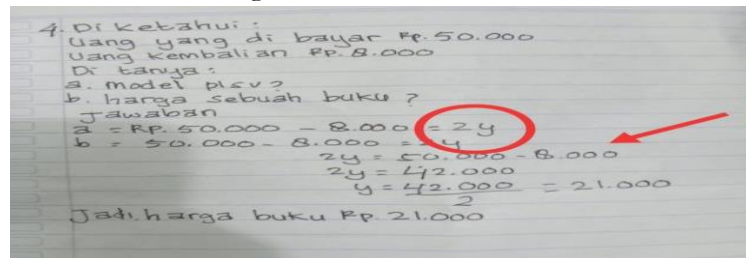 4. Di ketahui :
Uang yang di bayar Rp. 50.000
Uang kembalian Rp. 8.000
Di tanya :
a. model plsv?
b. harga sebuah buku ?
Jawaban
a = Rp. 50.000 - 8.000 = 2y
b = 50.000 - 8.000 = 2y
2y = 50.000 - 8.000
2y = 42.000
y = 42.000 = 21.000
2
Jadi harga buku Rp. 21.000